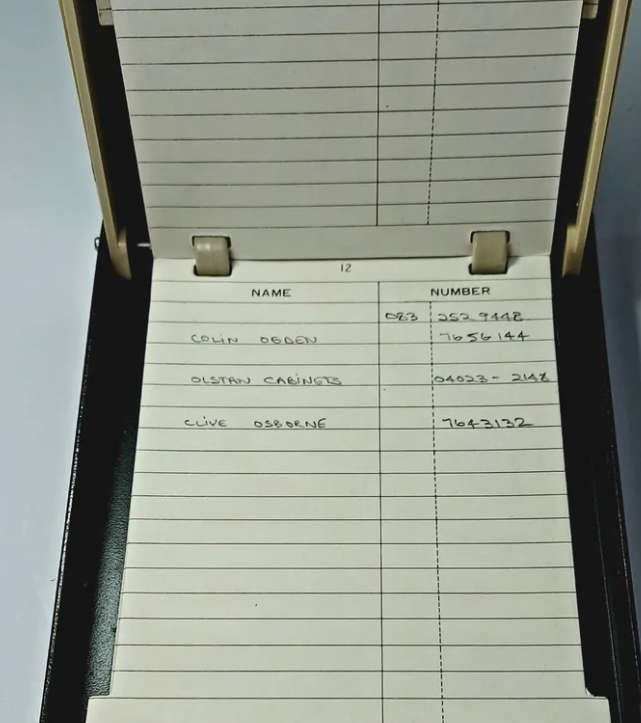 12
NAME NUMBER
083 252 9448
COLIN OGDEN 7656144
OLSTAN CABINETS 04023-2148
CLIVE OSBORNE 7643132